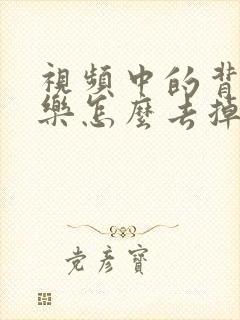 視頻中的背
樂怎麼去掉
党彥寶